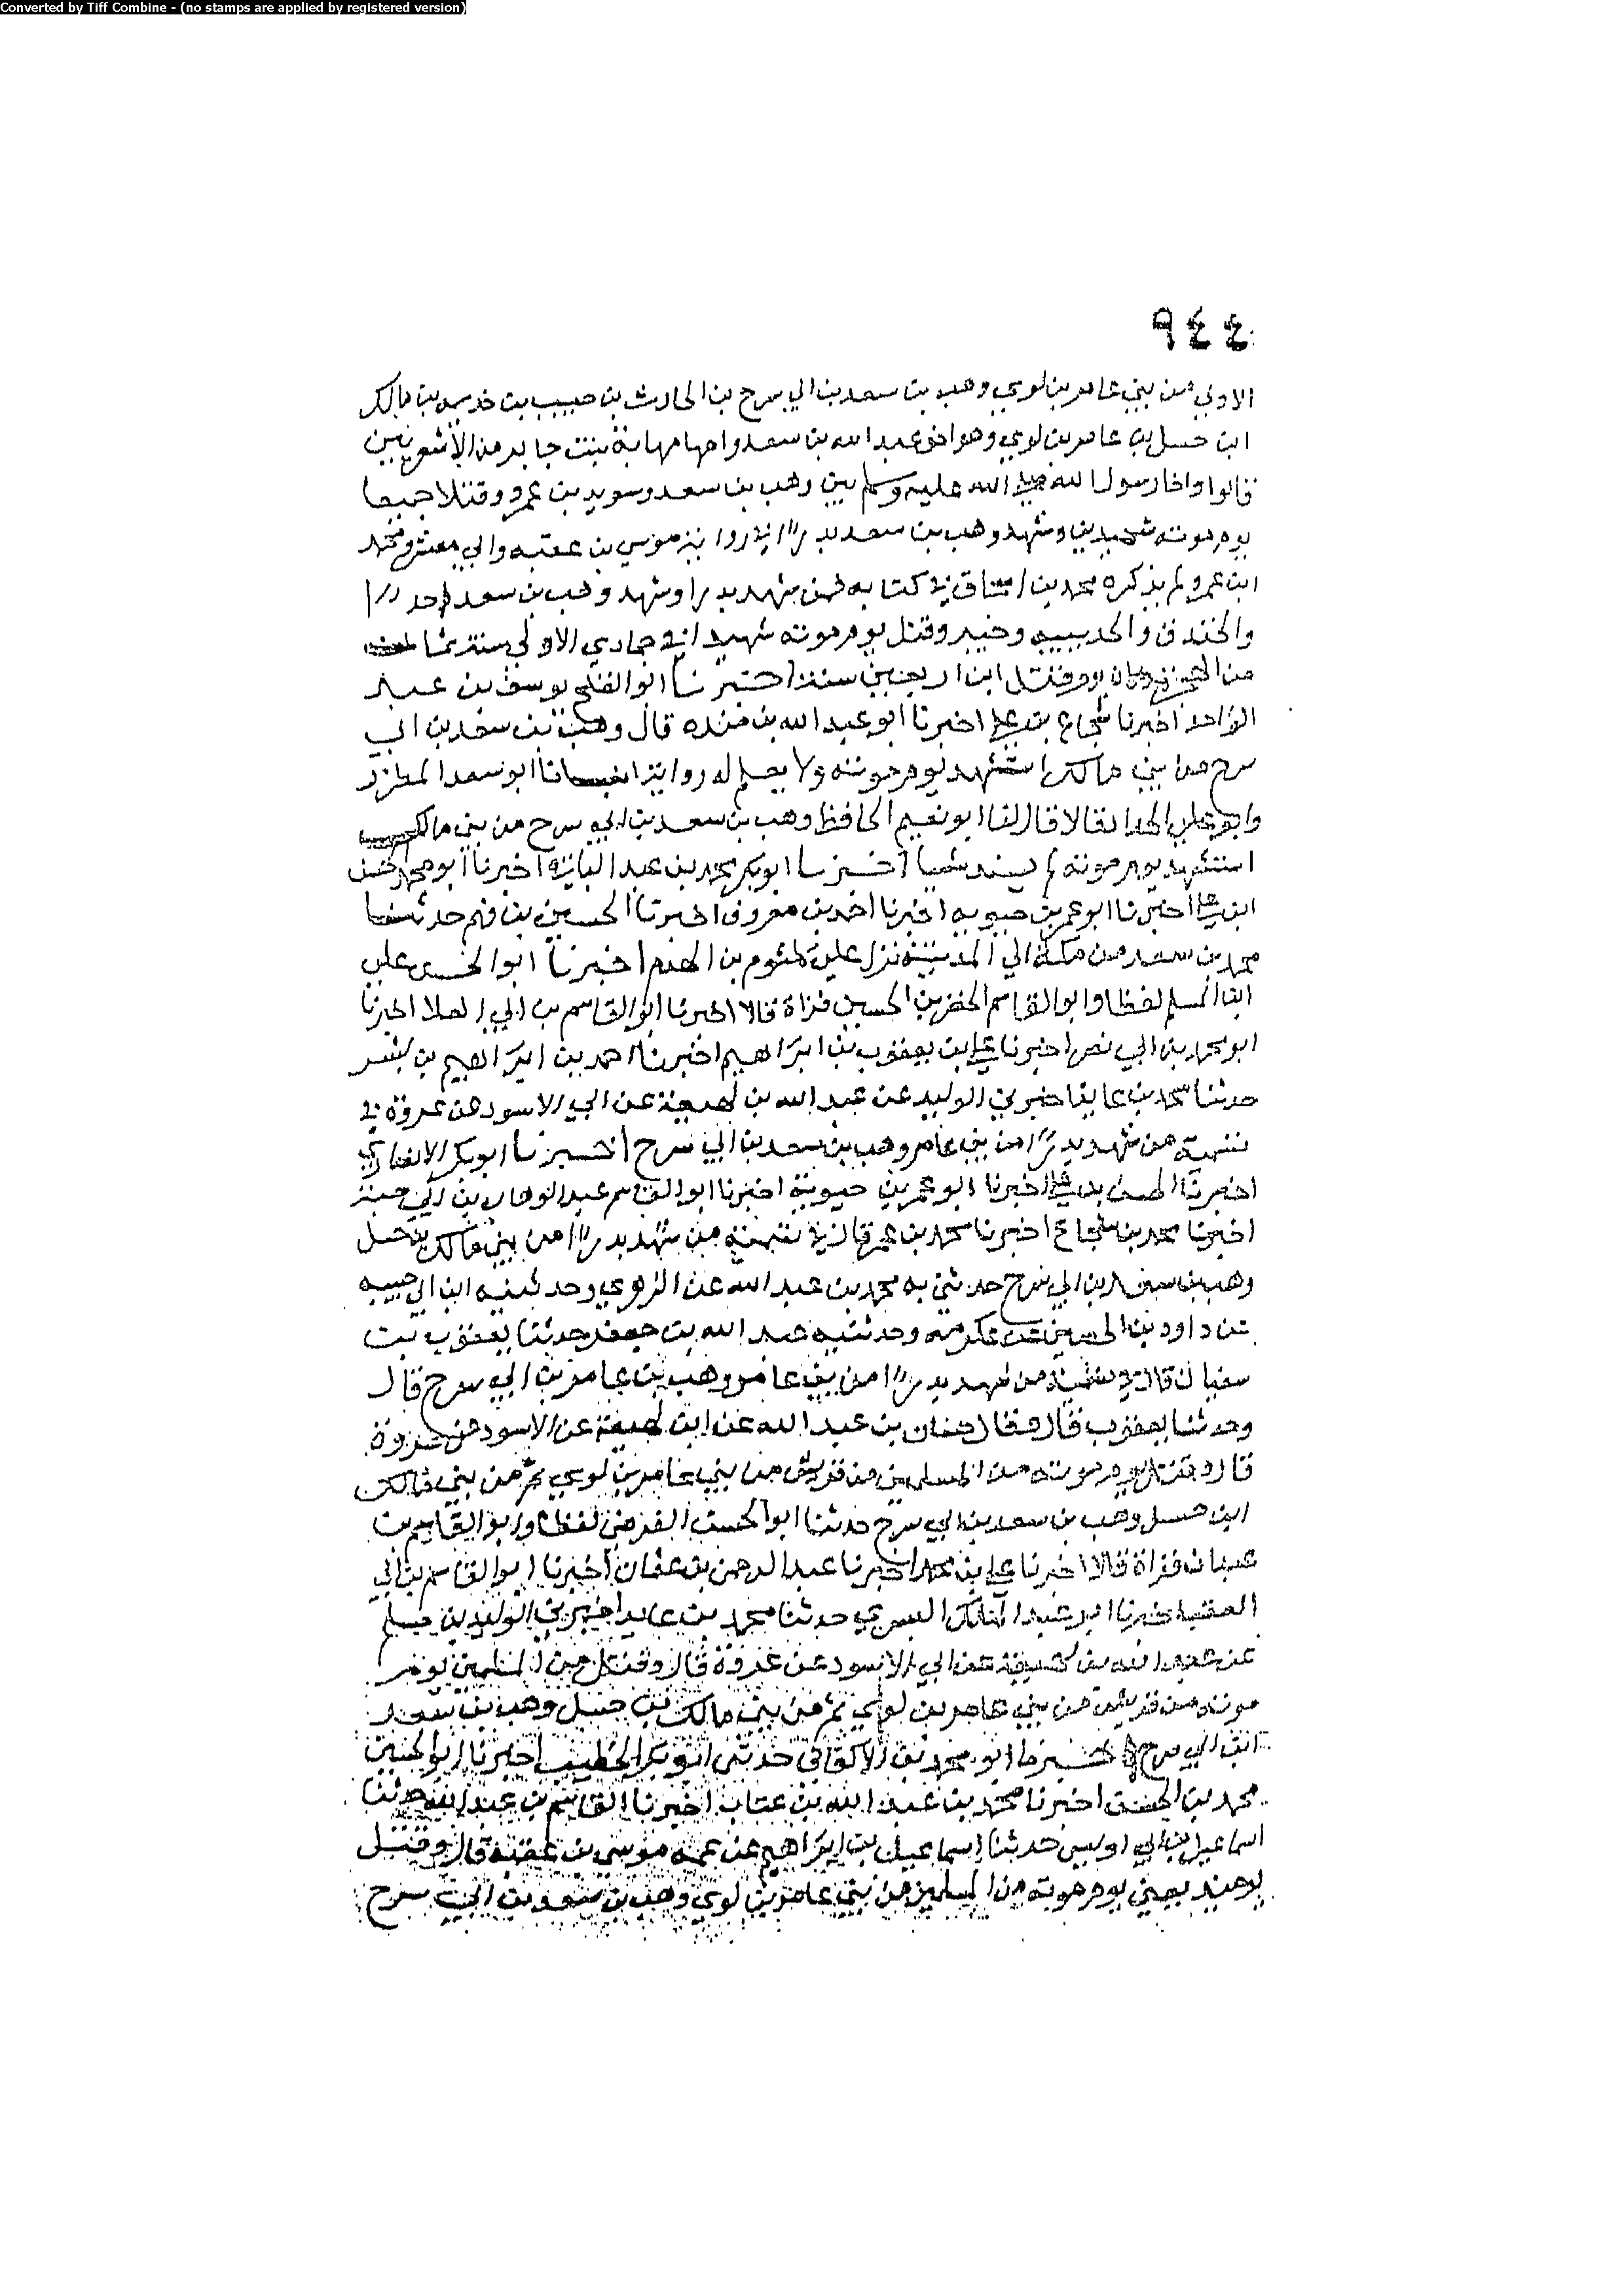 Converted by Tiff Combine - (no stamps are applied by registered version)
٩٤٤
الاولي من بني عامر بن لوي وهب بن سعد بن ابي سرح بن الحارث بن حبيب بن خذيمه بن مالك
ابن حسل بن عامر بن لوي وهو اخو عبد الله بن سعد وامهما مهابة بنت جابر من الاشعريين
قالوا واخا رسول الله صلى الله عليه وسلم بين وهب بن سعد وسويد بن عمرو وقتلا جميعا
يوم موته شهيدين وشهد وهب بن سعد بدرا في رواية موسي بن عقبه وابي معشر ومحمد
ابن عمرو ولم يذكره محمد بن اسحاق في كتابه فمن شهد بدرا وشهد وهب بن سعد احدا
والخندق والحديبيه وخيبر وقتل يوم موته شهيدا في جمادي الاولي سنة ثمان
من الهجرة وكان يوم قتل ابن اربعين سنة اخبرنا ابو الفتح يوسف بن عبد
الواحد اخبرنا شجاع بن علي اخبرنا ابو عبد الله بن منده قال وهب بن سعد بن ابي
سرح من بني مالك استشهد يوم موته ولا يعلم له رواية انبانا ابو سعد المطرز
وابو علي الحداد قالا قال لنا ابو نعيم الحافظ وهب بن سعد بن ابي سرح من بني مالك
استشهد يوم موته لم يسند شيا اخبرنا ابو بكر محمد بن عبد الباقي اخبرنا ابو محمد الحسن
ابن علي اخبرنا ابو عمر بن حيويه اخبرنا احمد بن معروف اخبرنا الحسين بن فهم حدثنا
محمد بن سعد من مكة الي المدينة نزل علي كلثوم بن الهدم اخبرنا ابو الحسن علي
ابن المسلم لفظا وابو القاسم الخضر بن الحسين قراة قالا اخبرنا ابو القاسم بن ابي العلا اخبرنا
ابو محمد بن ابي نصر اخبرنا علي بن يعقوب بن ابراهيم اخبرنا احمد بن ابراهيم بن بشر
حدثنا محمد بن عايذ اخبرني الوليد عن عبد الله بن لهيعة عن ابي الاسود عن عروة في
تسمية من شهد بدرا من بني عامر وهب بن سعد بن ابي سرح اخبرنا ابو بكر الانصاري
اخبرنا الحسن بن علي اخبرنا ابو عمر بن حيويه اخبرنا ابو القاسم عبد الوهاب بن ابي حية
اخبرنا محمد بن شجاع اخبرنا محمد بن عمر قال في تسمية من شهد بدرا من بني مالك بن حسل
وهب بن سعد بن ابي سرح حدثني به محمد بن عبد الله عن الزهري وحدثنيه ابن ابي حبيبه
عن داود بن الحصين عن عكرمه وحدثنيه عبد الله بن جعفر حدثنا يعقوب بن
سفيان قال في تسمية من شهد بدرا من بني عامر وهب بن عامر بن ابي سرح قال
وحدثنا يعقوب قال فقال حسان بن عبد الله عن ابن لهيعة عن الاسود عن عروة
قال وقتل يوم موته من المسلمين من قريش من بني عامر بن لوي ثم من بني مالك
ابن حسل وهب بن سعد بن ابي سرح حدثنا ابو الحسن الفرضي لفظا وابو القاسم بن
عبدان قراة قالا اخبرنا علي بن محمد اخبرنا عبد الرحمن بن عثمان اخبرنا ابو القاسم بن ابي
العقب اخبرنا ابو عبد الملك البسري حدثنا محمد بن عايد اخبرني الوليد بن مسلم
عن عبد الله بن لهيعة عن ابي الاسود عن عروة قال وقتل من المسلمين يوم
موته من قريش من بني عامر بن لوي ثم من بني مالك بن حسل وهب بن سعد
ابن ابي سرح اخبرنا ابو محمد بن الاكفاني حدثني ابو بكر الخطيب اخبرنا ابو الحسين
محمد بن الحسين اخبرنا محمد بن عبد الله بن عتاب اخبرنا القاسم بن عبد الله حدثنا
اسماعيل بن ابي اويس حدثنا اسماعيل بن ابراهيم عن عمه موسي بن عقبة قال وقتل
يوميذ يعني يوم موته من المسلمين من بني عامر بن لوي وهب بن سعد بن ابي سرح